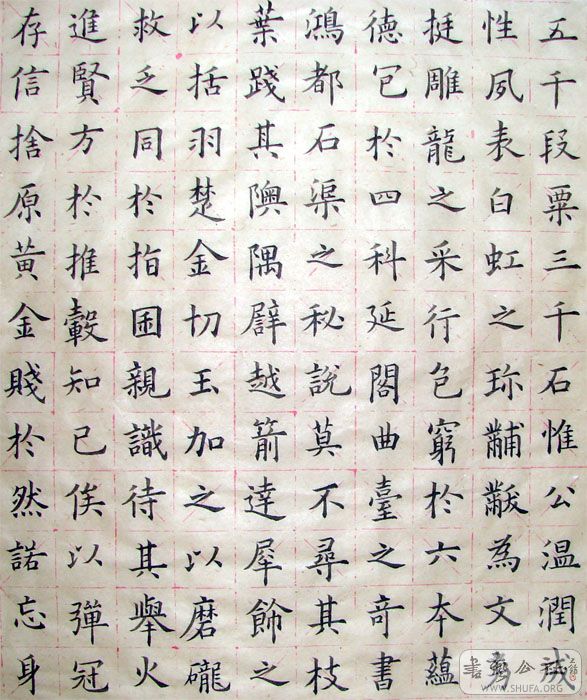 五千段粟三千石惟公温潤成
性夙表白虹之珎黼黻為文
挺雕龍之采行包窮於六本蘊
德包於四科延閣曲臺之奇書
鴻都石渠之秘說莫不尋其枝
葉踐其隩隅譬越箭達犀飾之
以括羽楚金切玉加之以磨礲
救乏同於指囷親識待其舉火
進賢方於推轂知己俟以彈冠
存信捨原黃金賤於然諾忘身
書藝公社
WWW.SHUFA.ORG